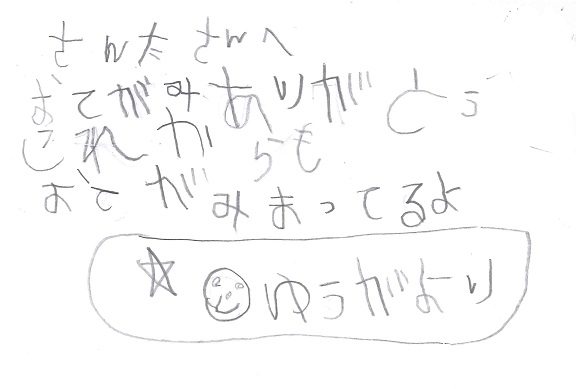 さんたさんへ
おてがみありがとう
これからも
おてがみまってるよ
ゆうがより